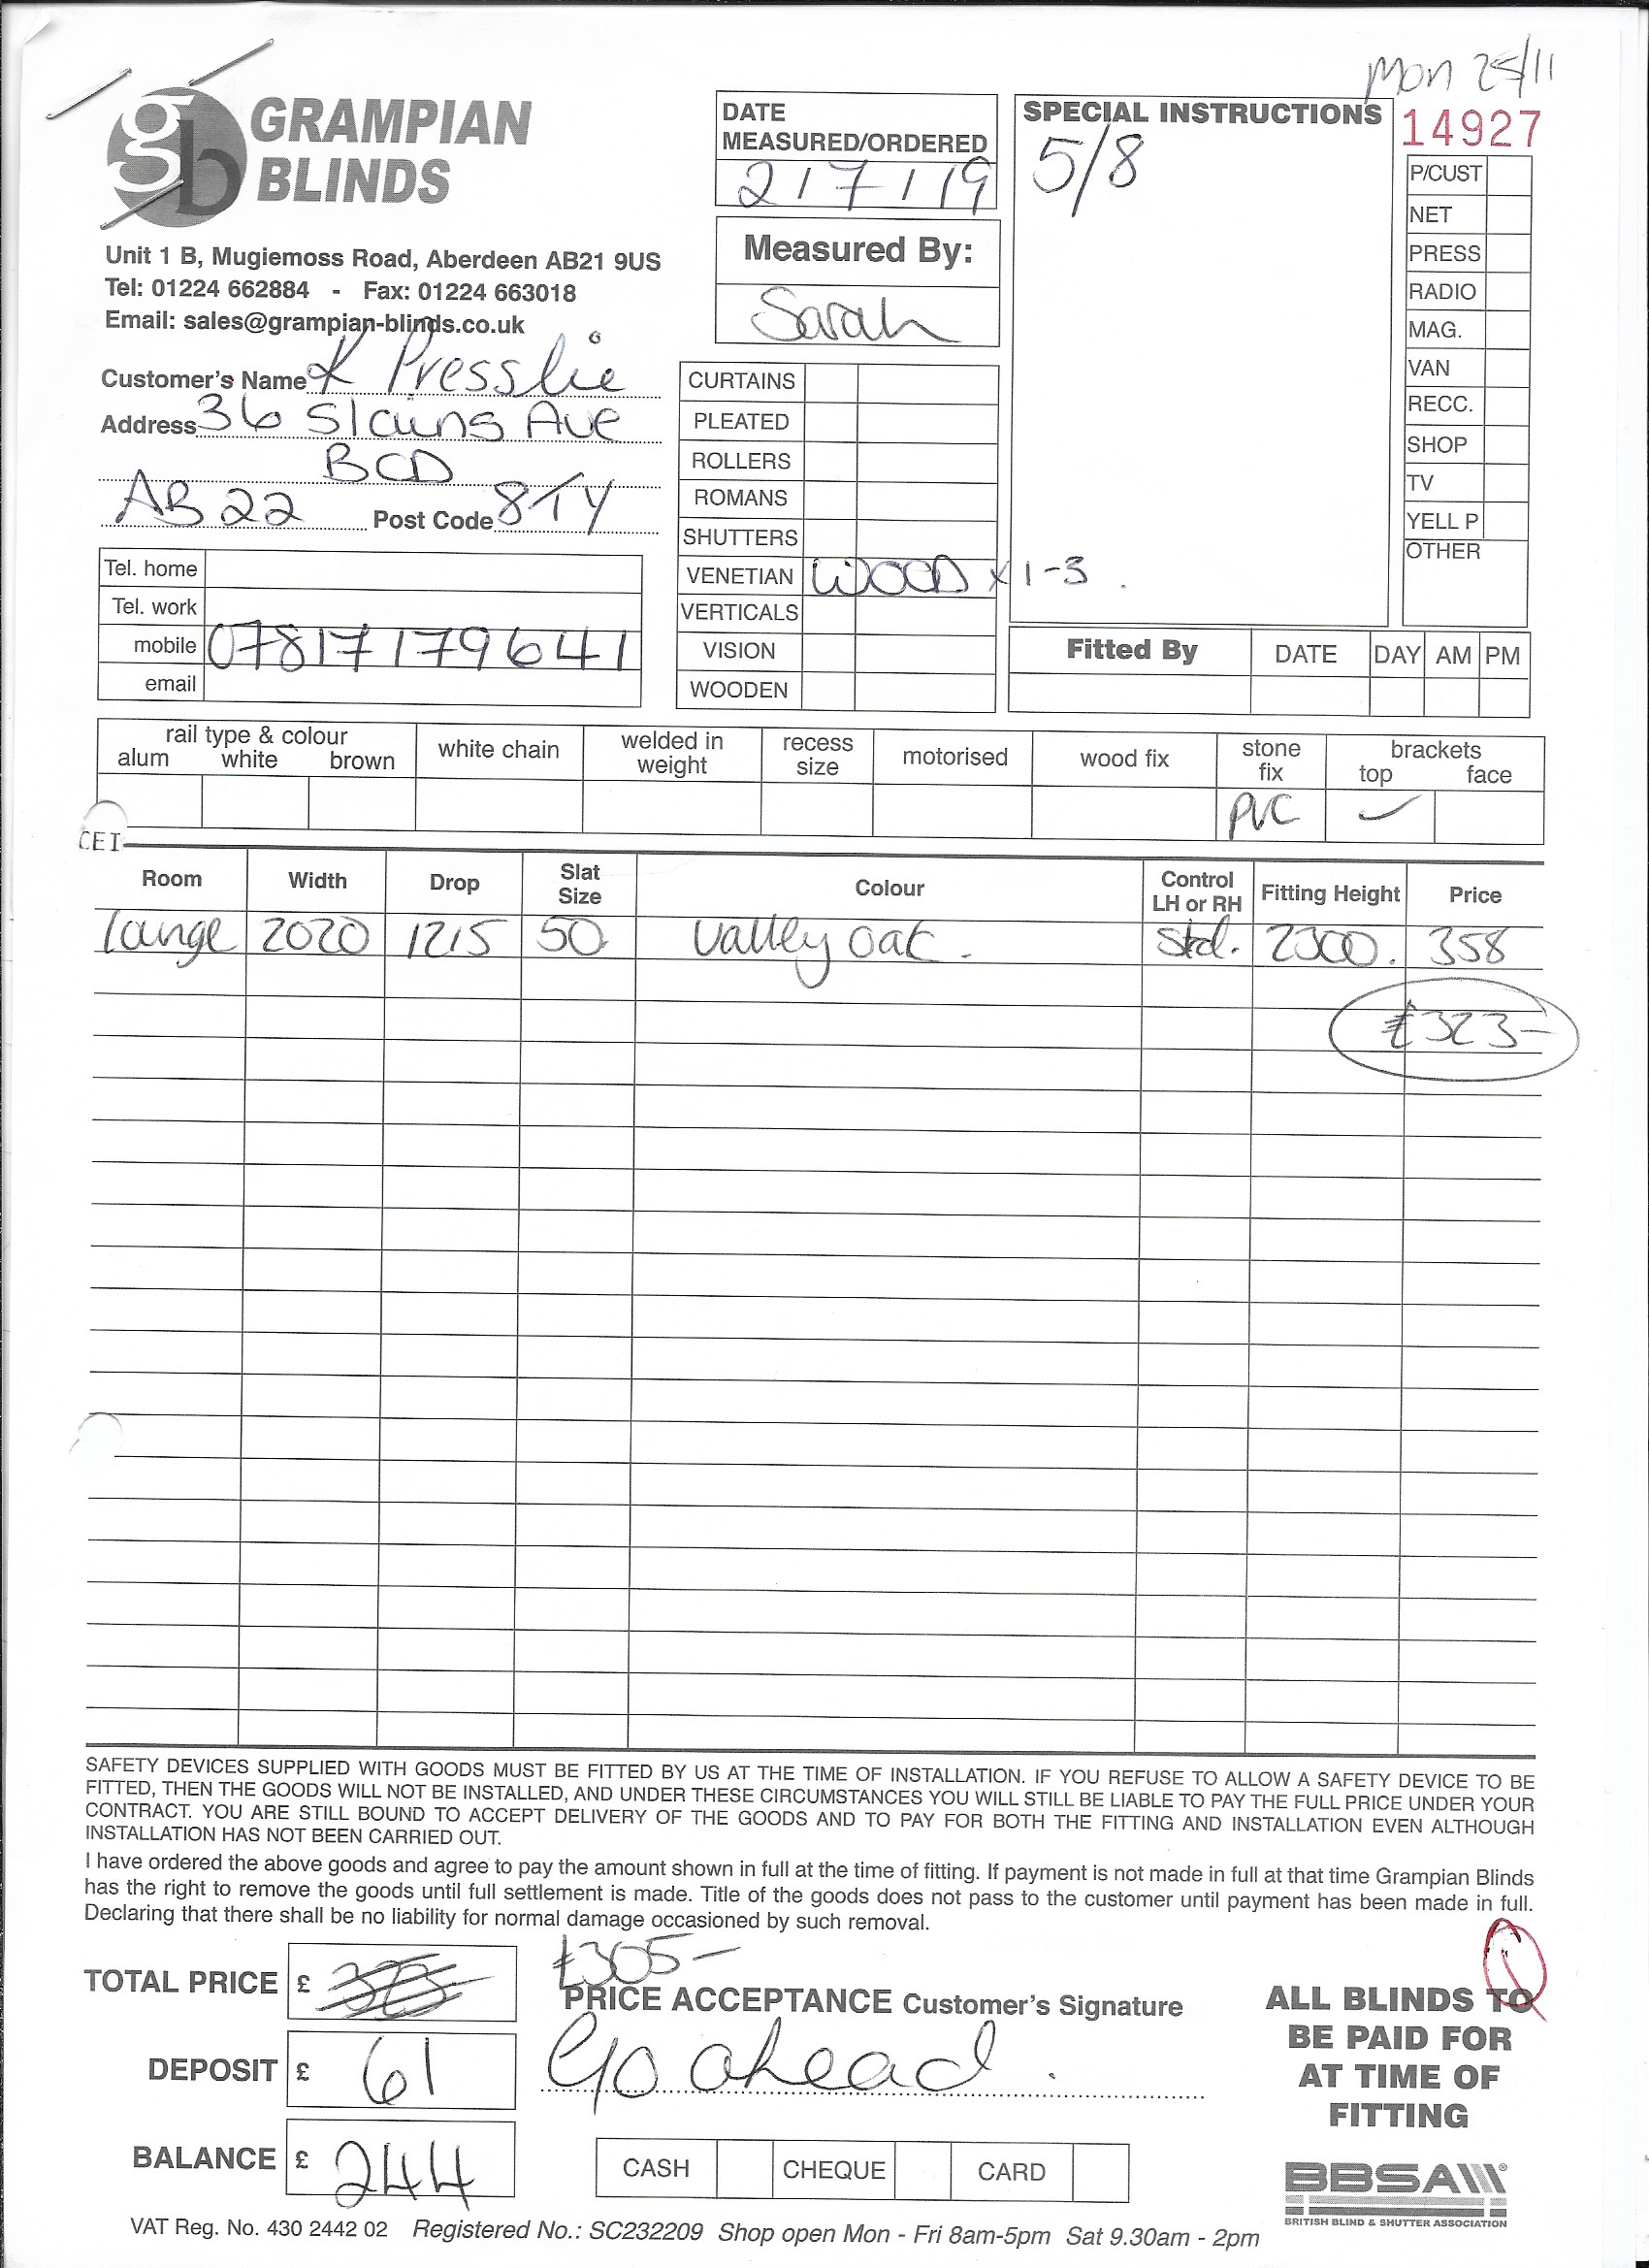 Mon 25/11
GRAMPIAN
BLINDS
Unit 1 B, Mugiemoss Road, Aberdeen AB21 9US
Tel: 01224 662884 - Fax: 01224 663018
Email: sales@grampian-blinds.co.uk
Customer's Name K Presslie
Address 36 Slains Ave
BCD
AB22 Post Code 8TY
Tel. home
Tel. work
mobile 07817179641
email
DATE
MEASURED/ORDERED
2/7/19
Measured By:
Sarah
CURTAINS
PLEATED
ROLLERS
ROMANS
SHUTTERS
VENETIAN WOOD x 1-3
VERTICALS
VISION
WOODEN
SPECIAL INSTRUCTIONS
5/8
14927
P/CUST
NET
PRESS
RADIO
MAG.
VAN
RECC.
SHOP
TV
YELL P
OTHER
Fitted By DATE DAY AM PM
rail type & colour
alum white brown
white chain
welded in
weight
recess
size
motorised
wood fix
stone
fix
PVC
brackets
top face
✓
CEI
Room Width Drop Slat Size Colour Control LH or RH Fitting Height Price
lounge 2020 1215 50 Valley oak. Std. 2300. 358
£323-
SAFETY DEVICES SUPPLIED WITH GOODS MUST BE FITTED BY US AT THE TIME OF INSTALLATION. IF YOU REFUSE TO ALLOW A SAFETY DEVICE TO BE
FITTED, THEN THE GOODS WILL NOT BE INSTALLED, AND UNDER THESE CIRCUMSTANCES YOU WILL STILL BE LIABLE TO PAY THE FULL PRICE UNDER YOUR
CONTRACT. YOU ARE STILL BOUND TO ACCEPT DELIVERY OF THE GOODS AND TO PAY FOR BOTH THE FITTING AND INSTALLATION EVEN ALTHOUGH
INSTALLATION HAS NOT BEEN CARRIED OUT.
I have ordered the above goods and agree to pay the amount shown in full at the time of fitting. If payment is not made in full at that time Grampian Blinds
has the right to remove the goods until full settlement is made. Title of the goods does not pass to the customer until payment has been made in full.
Declaring that there shall be no liability for normal damage occasioned by such removal.
TOTAL PRICE £
£305-
PRICE ACCEPTANCE Customer's Signature
Go ahead.
DEPOSIT £ 61
BALANCE £ 244
CASH CHEQUE CARD
ALL BLINDS TO
BE PAID FOR
AT TIME OF
FITTING
BBSA
BRITISH BLIND & SHUTTER ASSOCIATION
VAT Reg. No. 430 2442 02 Registered No.: SC232209 Shop open Mon - Fri 8am-5pm Sat 9.30am - 2pm